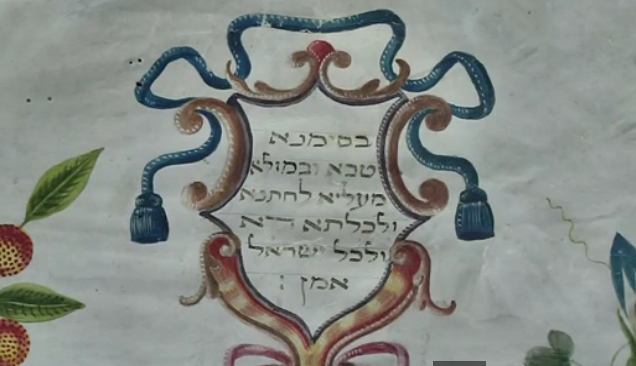 בסימנא
טבא ובמזלא
מעליא לחתנא
ולכלתא דא
ולכל ישראל
אמן :